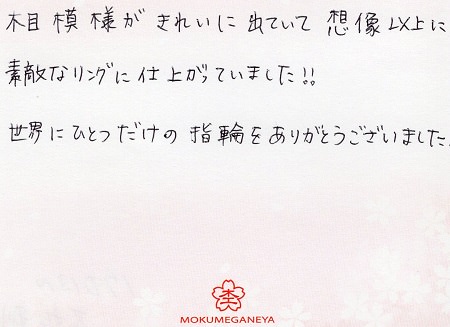 木目模様がきれいに出ていて想像以上に
素敵なリングに仕上がっていました!!
世界にひとつだけの指輪をありがとうございました。
MOKUMEGANEYA